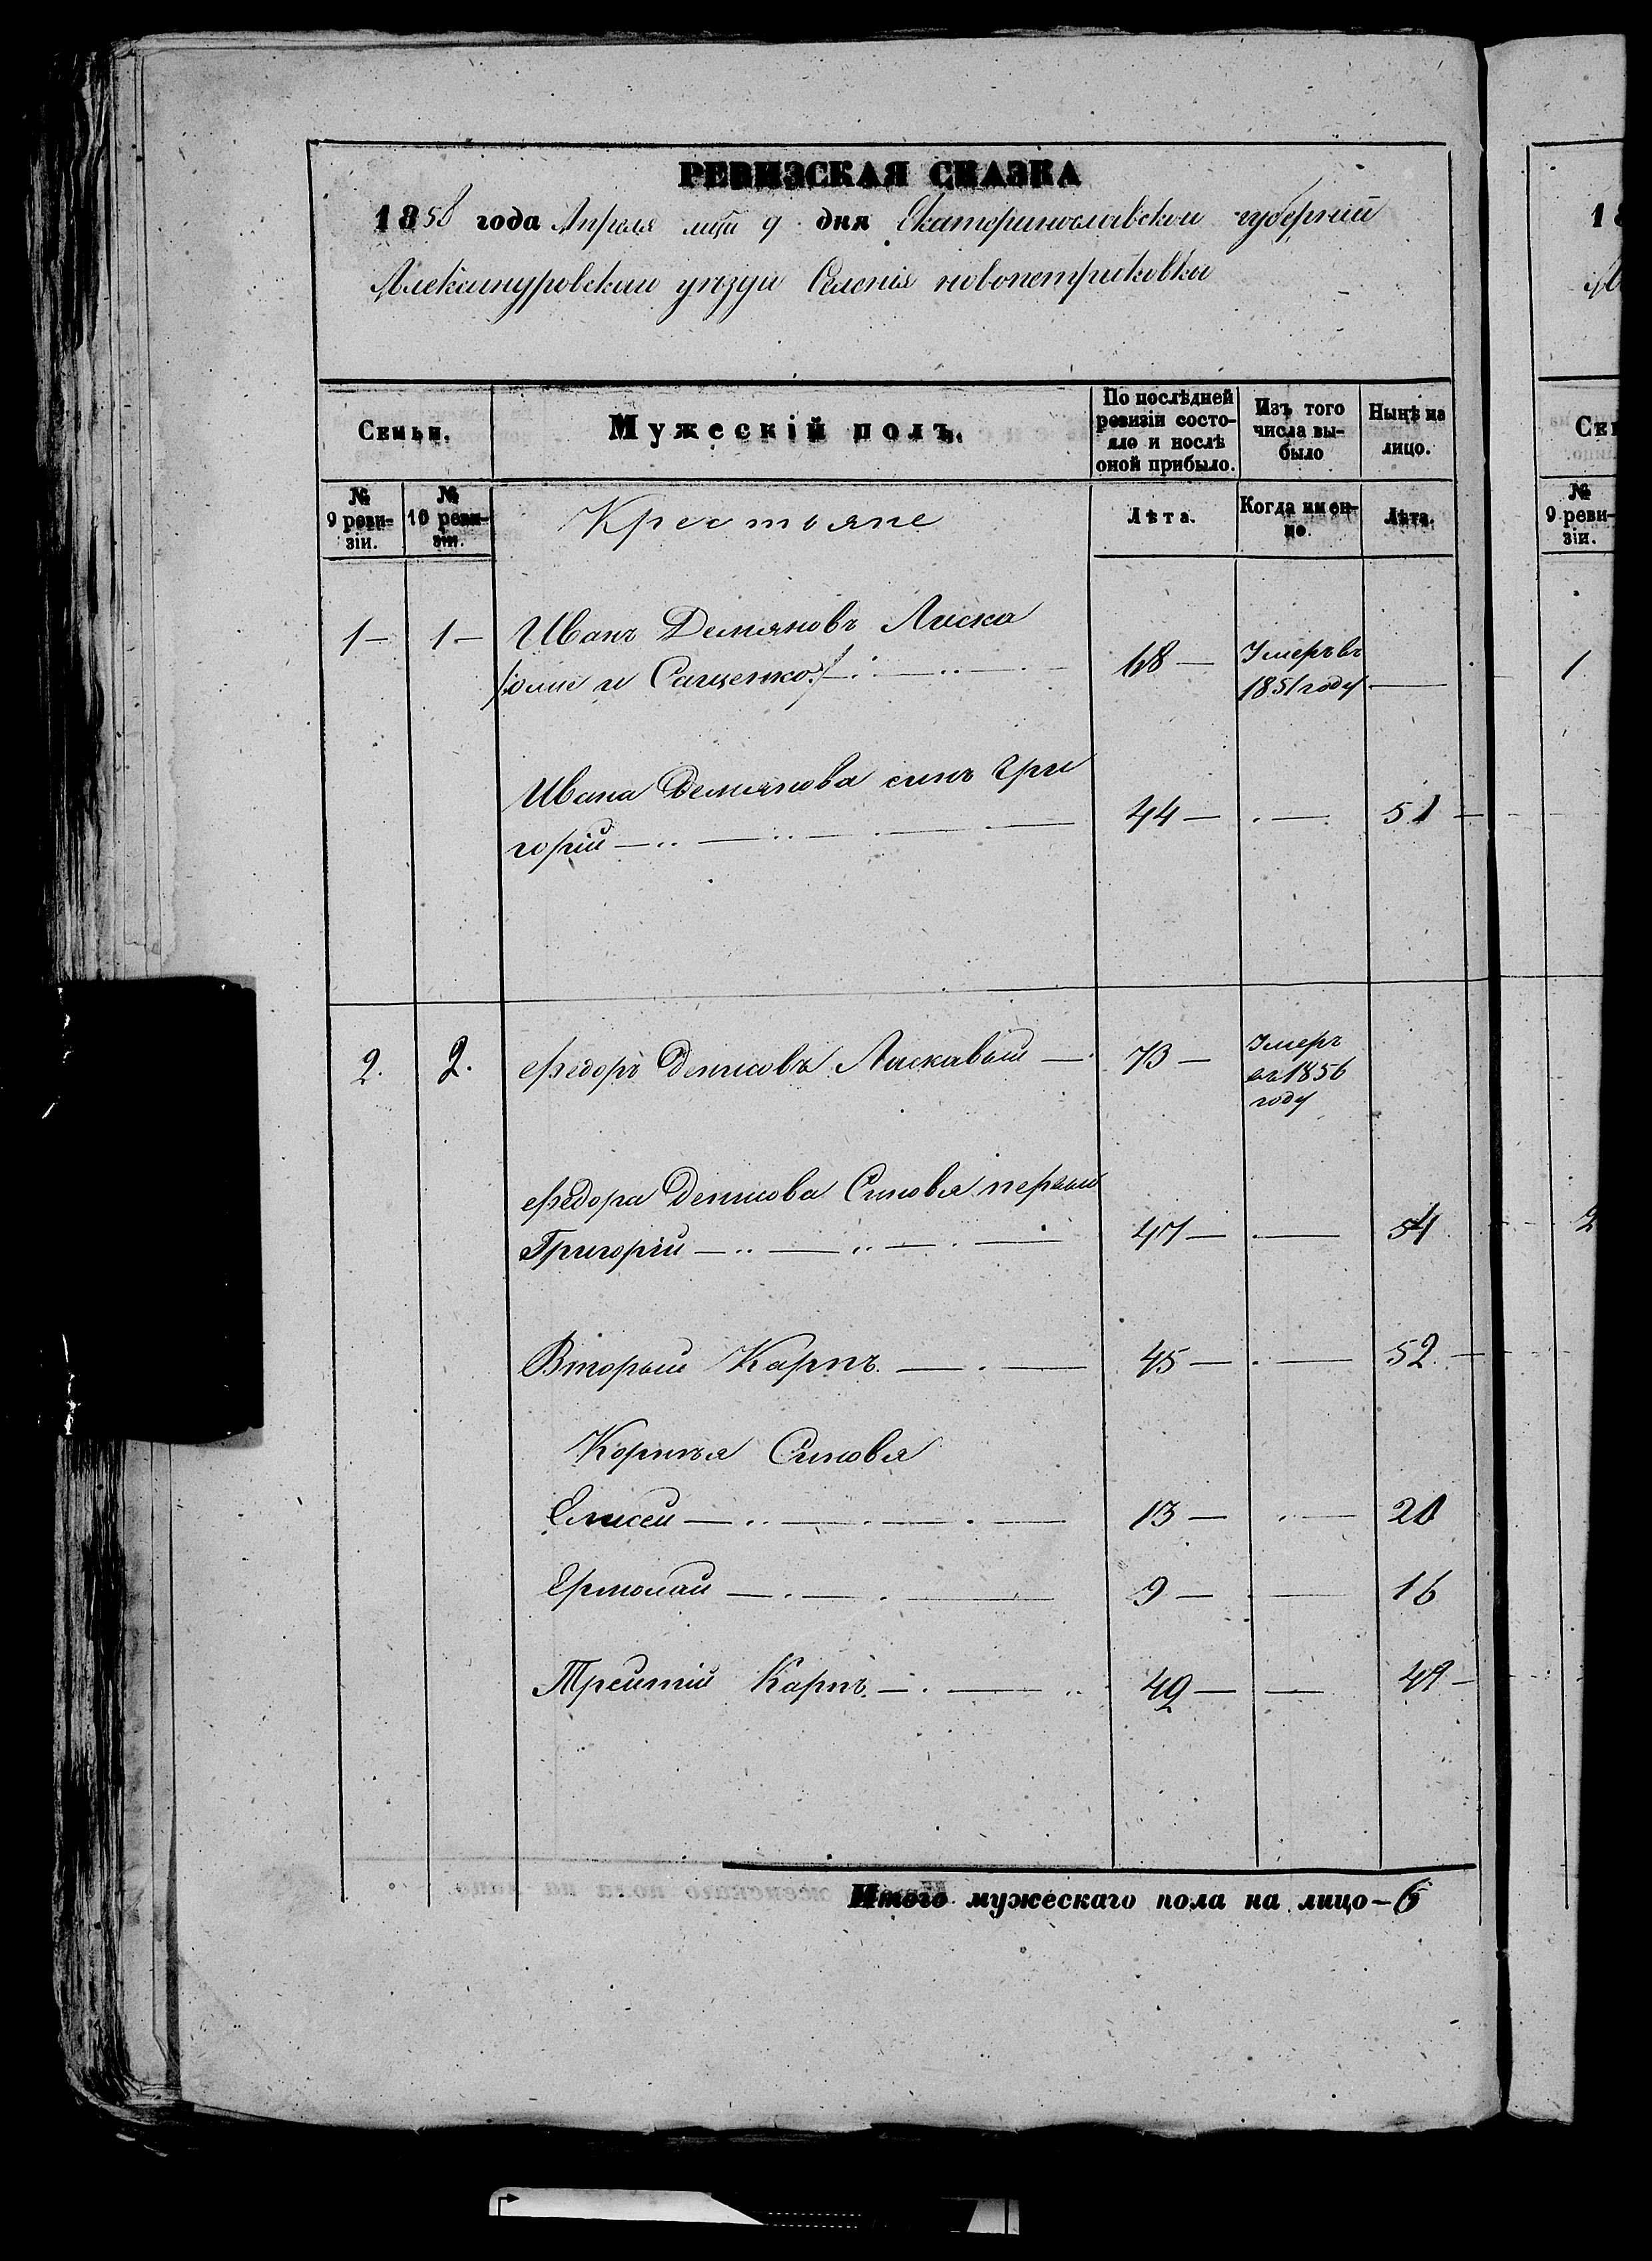 РЕВИЗСКАЯ СКАЗКА
1858 года Апреля мца 9 дня Екатеринославской губернии
Александровскаго уезда Селения новопетриковки
Семьи.
Мужескій полъ.
По послѣдней ревизіи состояло и послѣ оной прибыло.
Изъ того числа выбыло
Нынѣ на лицо.
№ 9 ревизіи.
№ 10 ревизіи.
Крестьяне
Лѣта.
Когда именно.
Лѣта.
1 — 1 — Иванъ Демяновъ Ласка
/:онже и Сащенко:/ 68 — Умеръ въ 1851 году —
Ивана Демянова синъ Гри
горій — 44 — — 51 —
2. 2. Федоръ Денисовъ Ласкавый — 73 — Умеръ въ 1856 году
Федора Денисова Синовя первый
Григорій — 47 — — 54
Вторый Карпъ. — 45 — — 52. —
Карпъя Синовя
Елисей — 13 — — 20
Ермолай — 9 — — 16
Третий Карпъ — 42 — — 49 —
Итого мужескаго пола на лицо — 6
18
Сем
№ 9 ревизіи.
1
2